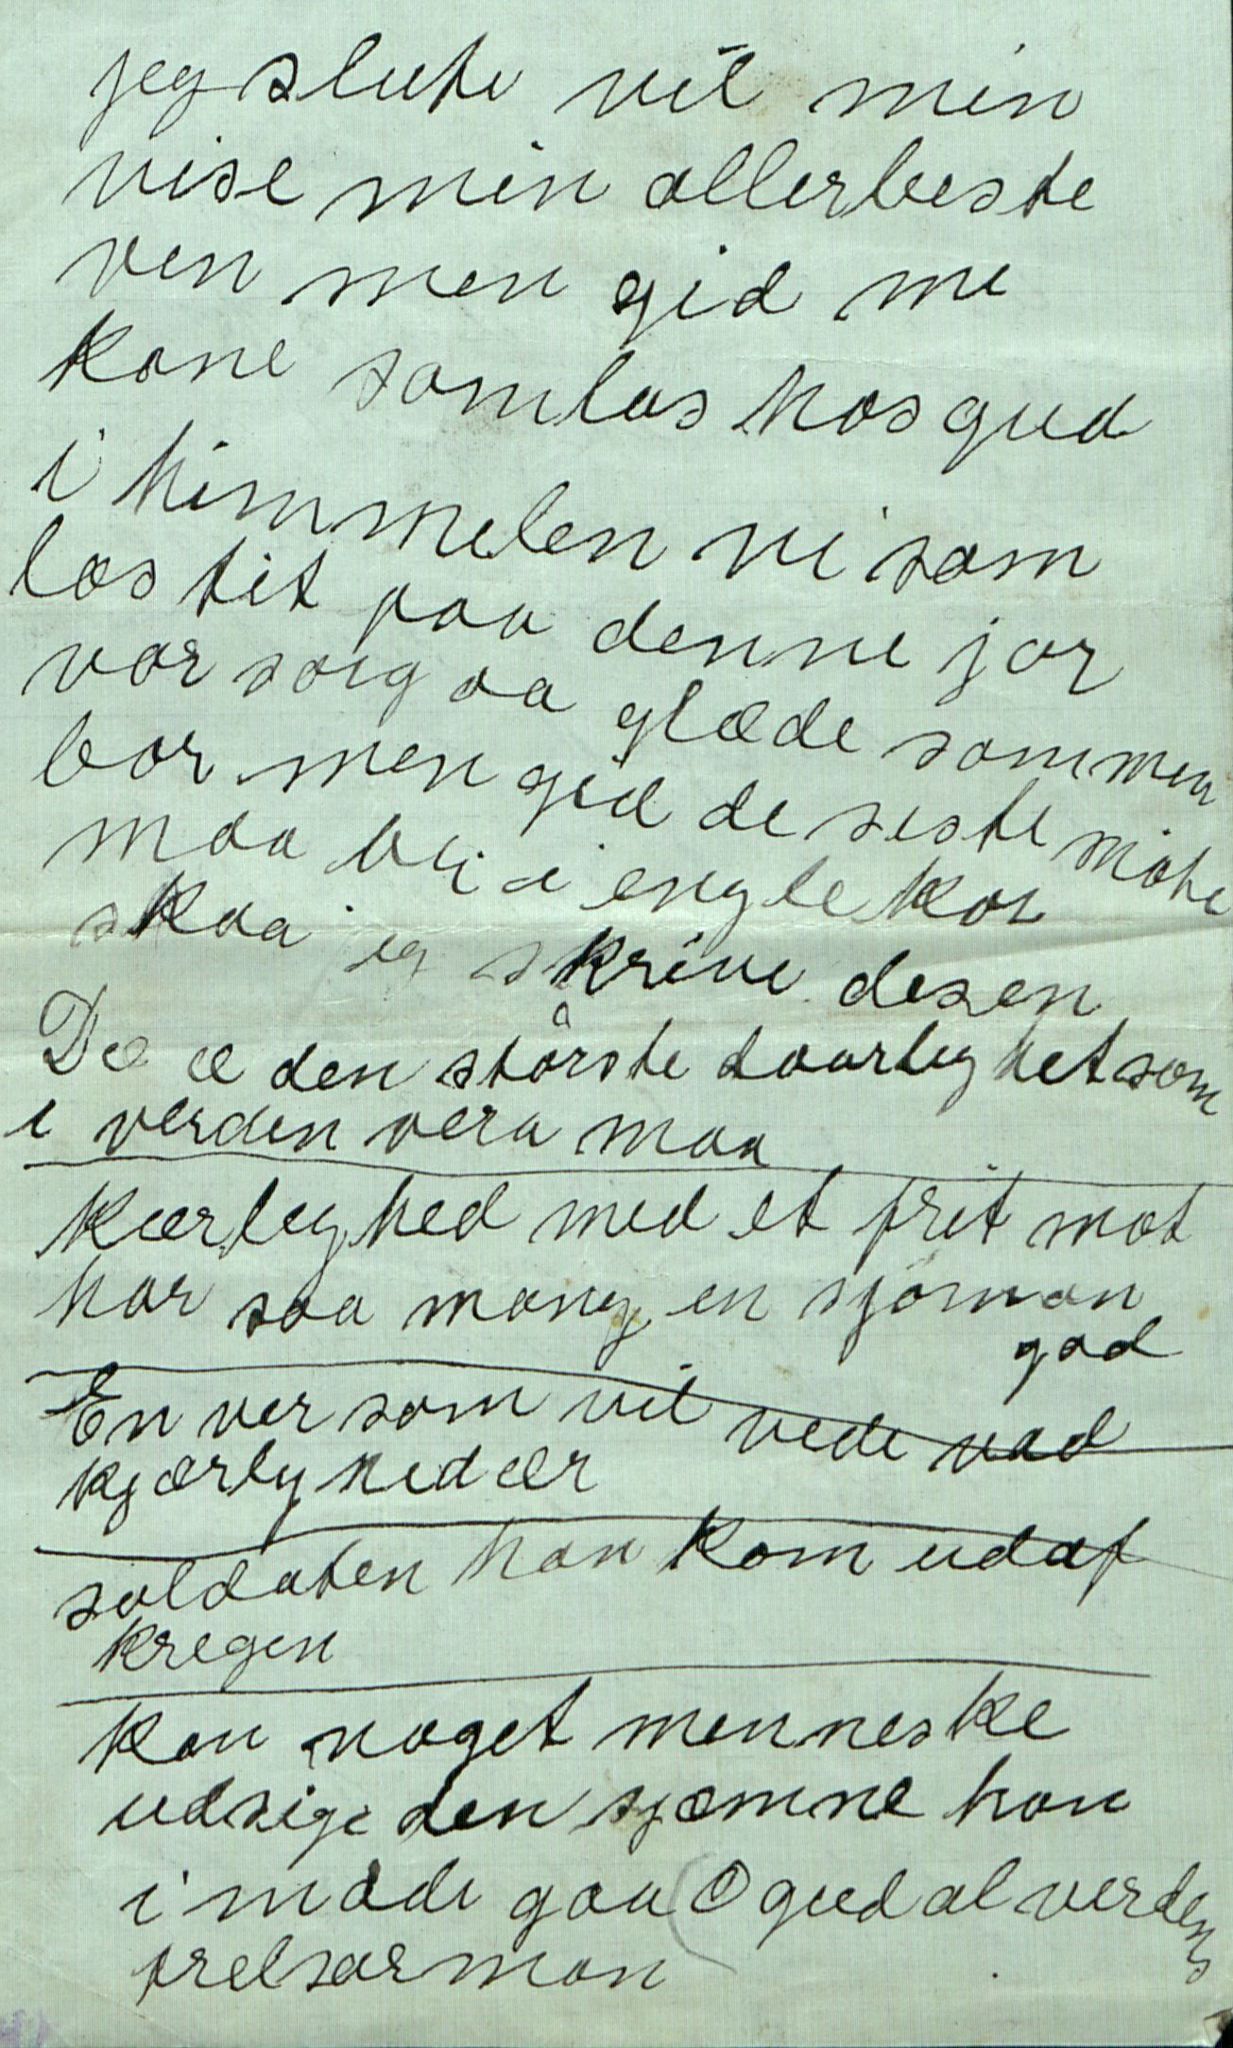 jeg slute vil min
vise min allerbeste
ven men gid me
kone samlas hos gud
i himmelen vi sam
las tit paa denne jor
vor sorg aa glæde sammen
bor men gid de siste möte
maa bli i engle kor
skaa jeg skrive desen
De æ den störste daarleghet som
i verden vera maa
Kærleghed med et frit mot
har saa mang en sjöman
god
En ver som vil vede vad
kjærlyhed ær
soldaten han kom udaf
kregen
kan noget menneske
udsige den sjæmne han
i möde gaa O gud al verdens
frelsar man